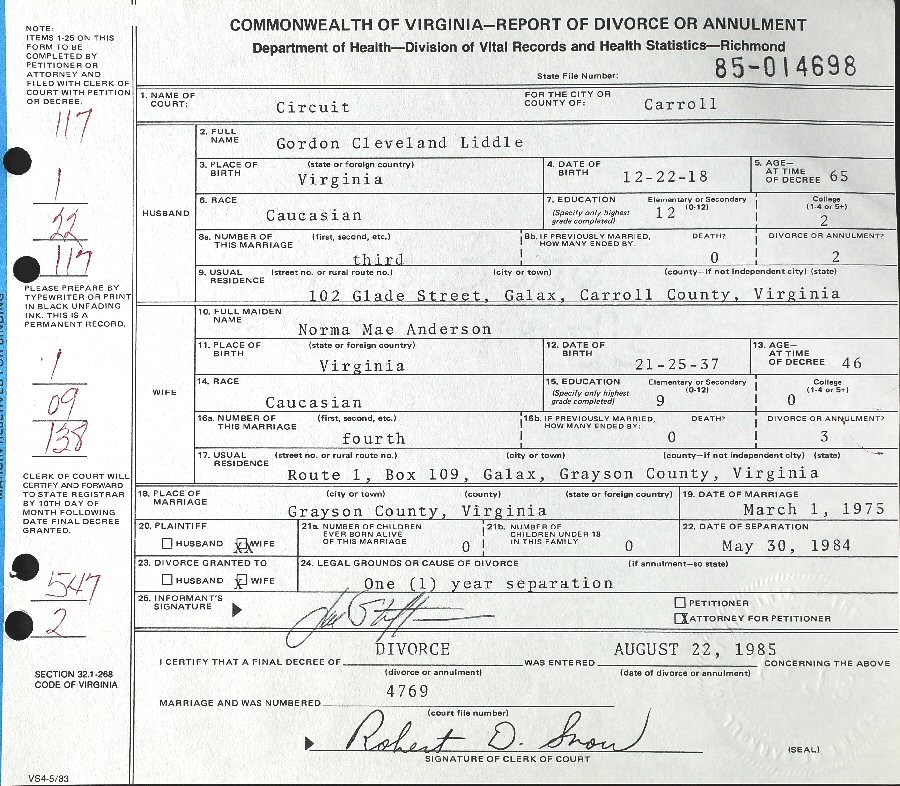 COMMONWEALTH OF VIRGINIA—REPORT OF DIVORCE OR ANNULMENT
Department of Health—Division of Vital Records and Health Statistics—Richmond
State File Number: 85-014698
NOTE:
ITEMS 1-25 ON THIS
FORM TO BE
COMPLETED BY
PETITIONER OR
ATTORNEY AND
FILED WITH CLERK OF
COURT WITH PETITION
OR DECREE.
117
1
22
117
PLEASE PREPARE BY
TYPEWRITER OR PRINT
IN BLACK UNFADING
INK. THIS IS A
PERMANENT RECORD.
1
09
138
CLERK OF COURT WILL
CERTIFY AND FORWARD
TO STATE REGISTRAR
BY 10TH DAY OF
MONTH FOLLOWING
DATE FINAL DECREE
GRANTED.
547
2
SECTION 32.1-268
CODE OF VIRGINIA
VS4-5/83
1. NAME OF COURT: Circuit FOR THE CITY OR COUNTY OF: Carroll
HUSBAND
2. FULL NAME Gordon Cleveland Liddle
3. PLACE OF BIRTH (state or foreign country) Virginia 4. DATE OF BIRTH 12-22-18 5. AGE— AT TIME OF DECREE 65
6. RACE Caucasian 7. EDUCATION (Specify only highest grade completed) Elementary or Secondary (0-12) 12 College (1-4 or 5+) 2
8a. NUMBER OF THIS MARRIAGE (first, second, etc.) third 8b. IF PREVIOUSLY MARRIED, HOW MANY ENDED BY: DEATH? 0 DIVORCE OR ANNULMENT? 2
9. USUAL RESIDENCE (street no. or rural route no.) (city or town) (county—if not independent city) (state)
102 Glade Street, Galax, Carroll County, Virginia
WIFE
10. FULL MAIDEN NAME Norma Mae Anderson
11. PLACE OF BIRTH (state or foreign country) Virginia 12. DATE OF BIRTH 21-25-37 13. AGE— AT TIME OF DECREE 46
14. RACE Caucasian 15. EDUCATION (Specify only highest grade completed) Elementary or Secondary (0-12) 9 College (1-4 or 5+) 0
16a. NUMBER OF THIS MARRIAGE (first, second, etc.) fourth 16b. IF PREVIOUSLY MARRIED, HOW MANY ENDED BY: DEATH? 0 DIVORCE OR ANNULMENT? 3
17. USUAL RESIDENCE (street no. or rural route no.) (city or town) (county—if not independent city) (state)
Route 1, Box 109, Galax, Grayson County, Virginia
18. PLACE OF MARRIAGE (city or town) (county) (state or foreign country) Grayson County, Virginia 19. DATE OF MARRIAGE March 1, 1975
20. PLAINTIFF HUSBAND XX WIFE 21a. NUMBER OF CHILDREN EVER BORN ALIVE OF THIS MARRIAGE 0 21b. NUMBER OF CHILDREN UNDER 18 IN THIS FAMILY 0 22. DATE OF SEPARATION May 30, 1984
23. DIVORCE GRANTED TO HUSBAND X WIFE 24. LEGAL GROUNDS OR CAUSE OF DIVORCE (if annulment—so state) One (1) year separation
25. INFORMANT'S SIGNATURE
PETITIONER
X ATTORNEY FOR PETITIONER
I CERTIFY THAT A FINAL DECREE OF DIVORCE WAS ENTERED AUGUST 22, 1985 CONCERNING THE ABOVE
(divorce or annulment) (date of divorce or annulment)
MARRIAGE AND WAS NUMBERED 4769
(court file number)
Robert D. Snow (SEAL)
SIGNATURE OF CLERK OF COURT